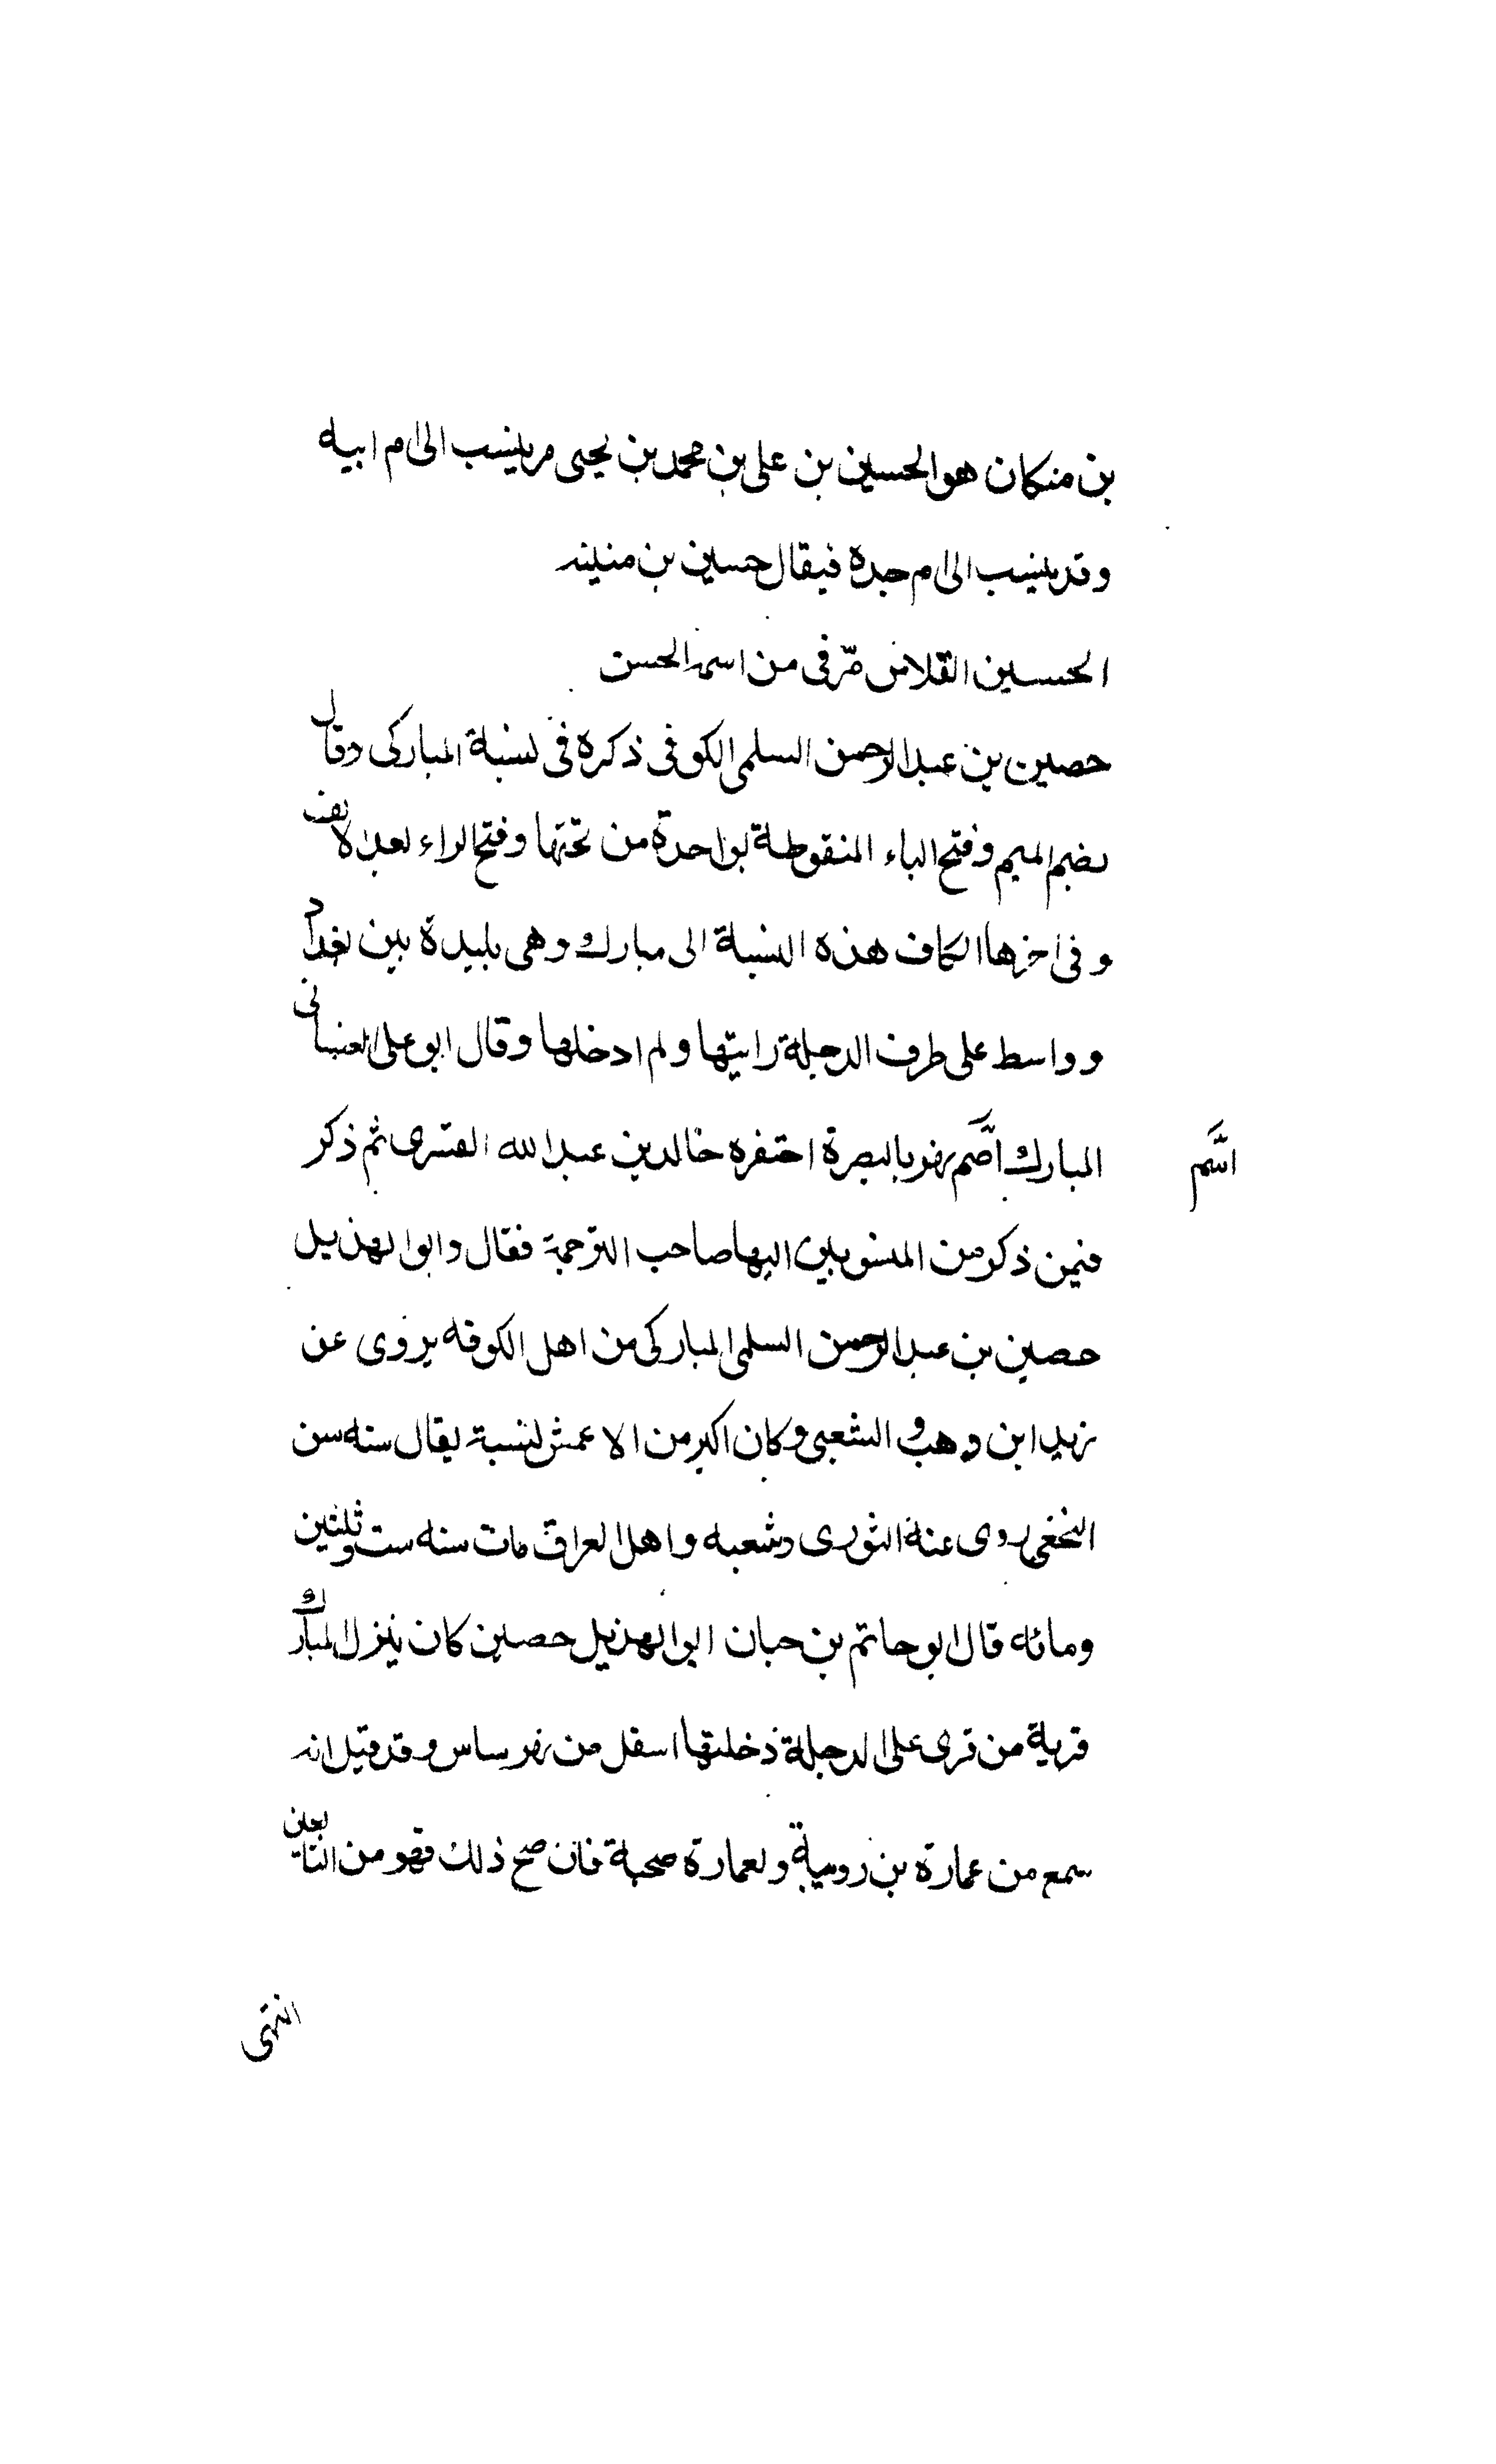 بن منكان هو الحسين بن على بن محمد بن يحيى مر ينسب الى ام ابيه
وقد ينسب الى ام جده فيقال حسين بن منينه
الحسين القلاس مّر فى من اسمه الحسن
حصين بن عبد الرحمن السلمى الكوفى ذكره فى نسبة المباركى وقال
بضم الميم وفتح الباء المنقوطة بواحدة من تحتها وفتح الراء بعد الالف
وفى اخرها الكاف هذه النسبة الى مبارك وهى بليدة بين بغداد
وواسط على طرف الدجلة رايتها ولم ادخلها وقال ابو على الغسانى
المبارك اسَّم نهر بالبصرة احتفره خالد بن عبد الله القسرى ثم ذكر
اسَّم
فيمن ذكر من المنسوبين اليها صاحب الترجمة فقال وابو الهذيل
حصين بن عبد الرحمن السلمى المباركى من اهل الكوفه يروى عن
زيد ابن وهب و الشعبى وكان اكبر من الاعمش لنسبة يقال سنه سن
النخعى روى عنة الثورى وشعبه واهل العراق مات سنه ست وثلثين
ومائه قال ابو حاتم بن حبان ابو الهذيل حصين كان ينزل المبارك
قرية من قرى على الدجلة دخلتها اسفل من نهر ساس وقد قيل انه
سمع من عمارة بن رويبة ولعمارة صحبة فان صح ذلك فهو من التابعين
انتهى